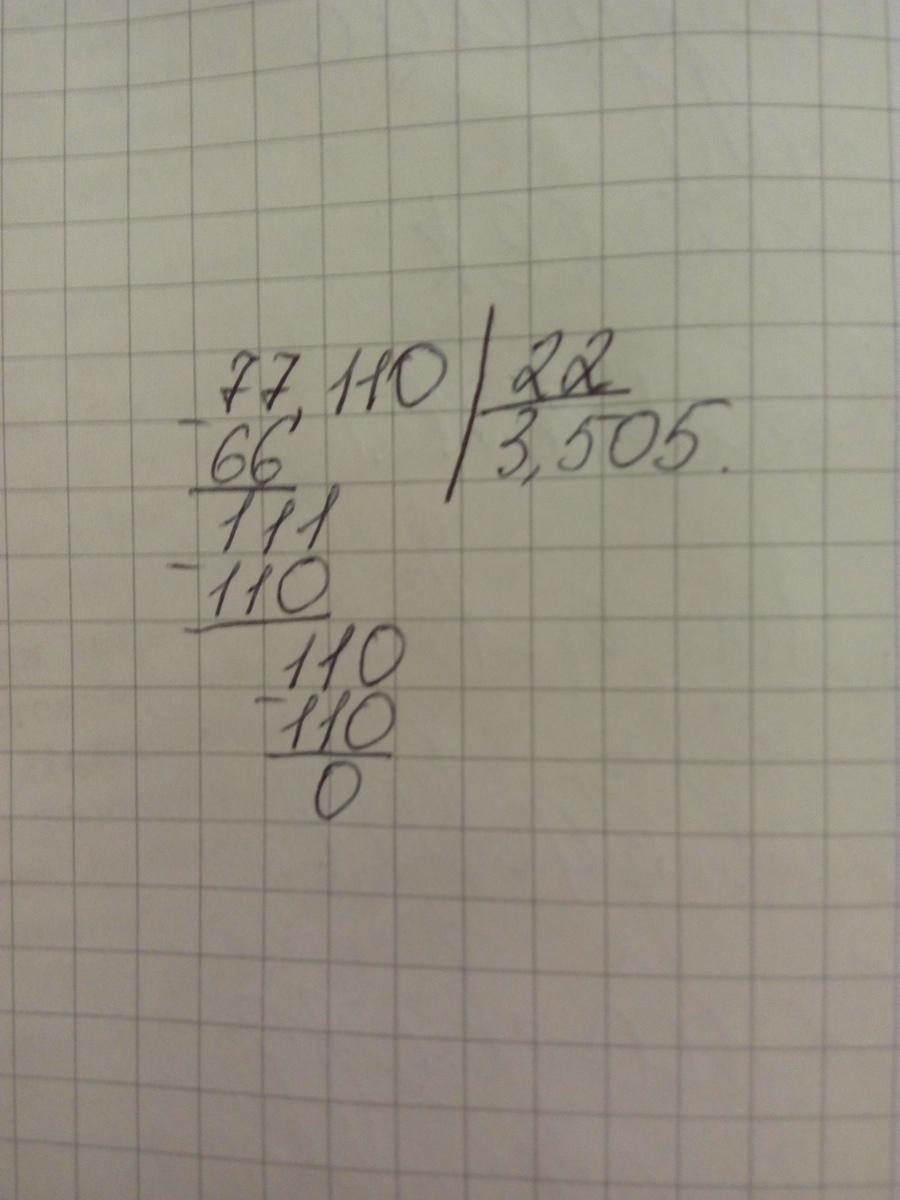 77,110 22
- 66 3,505.
111
- 110
110
- 110
0